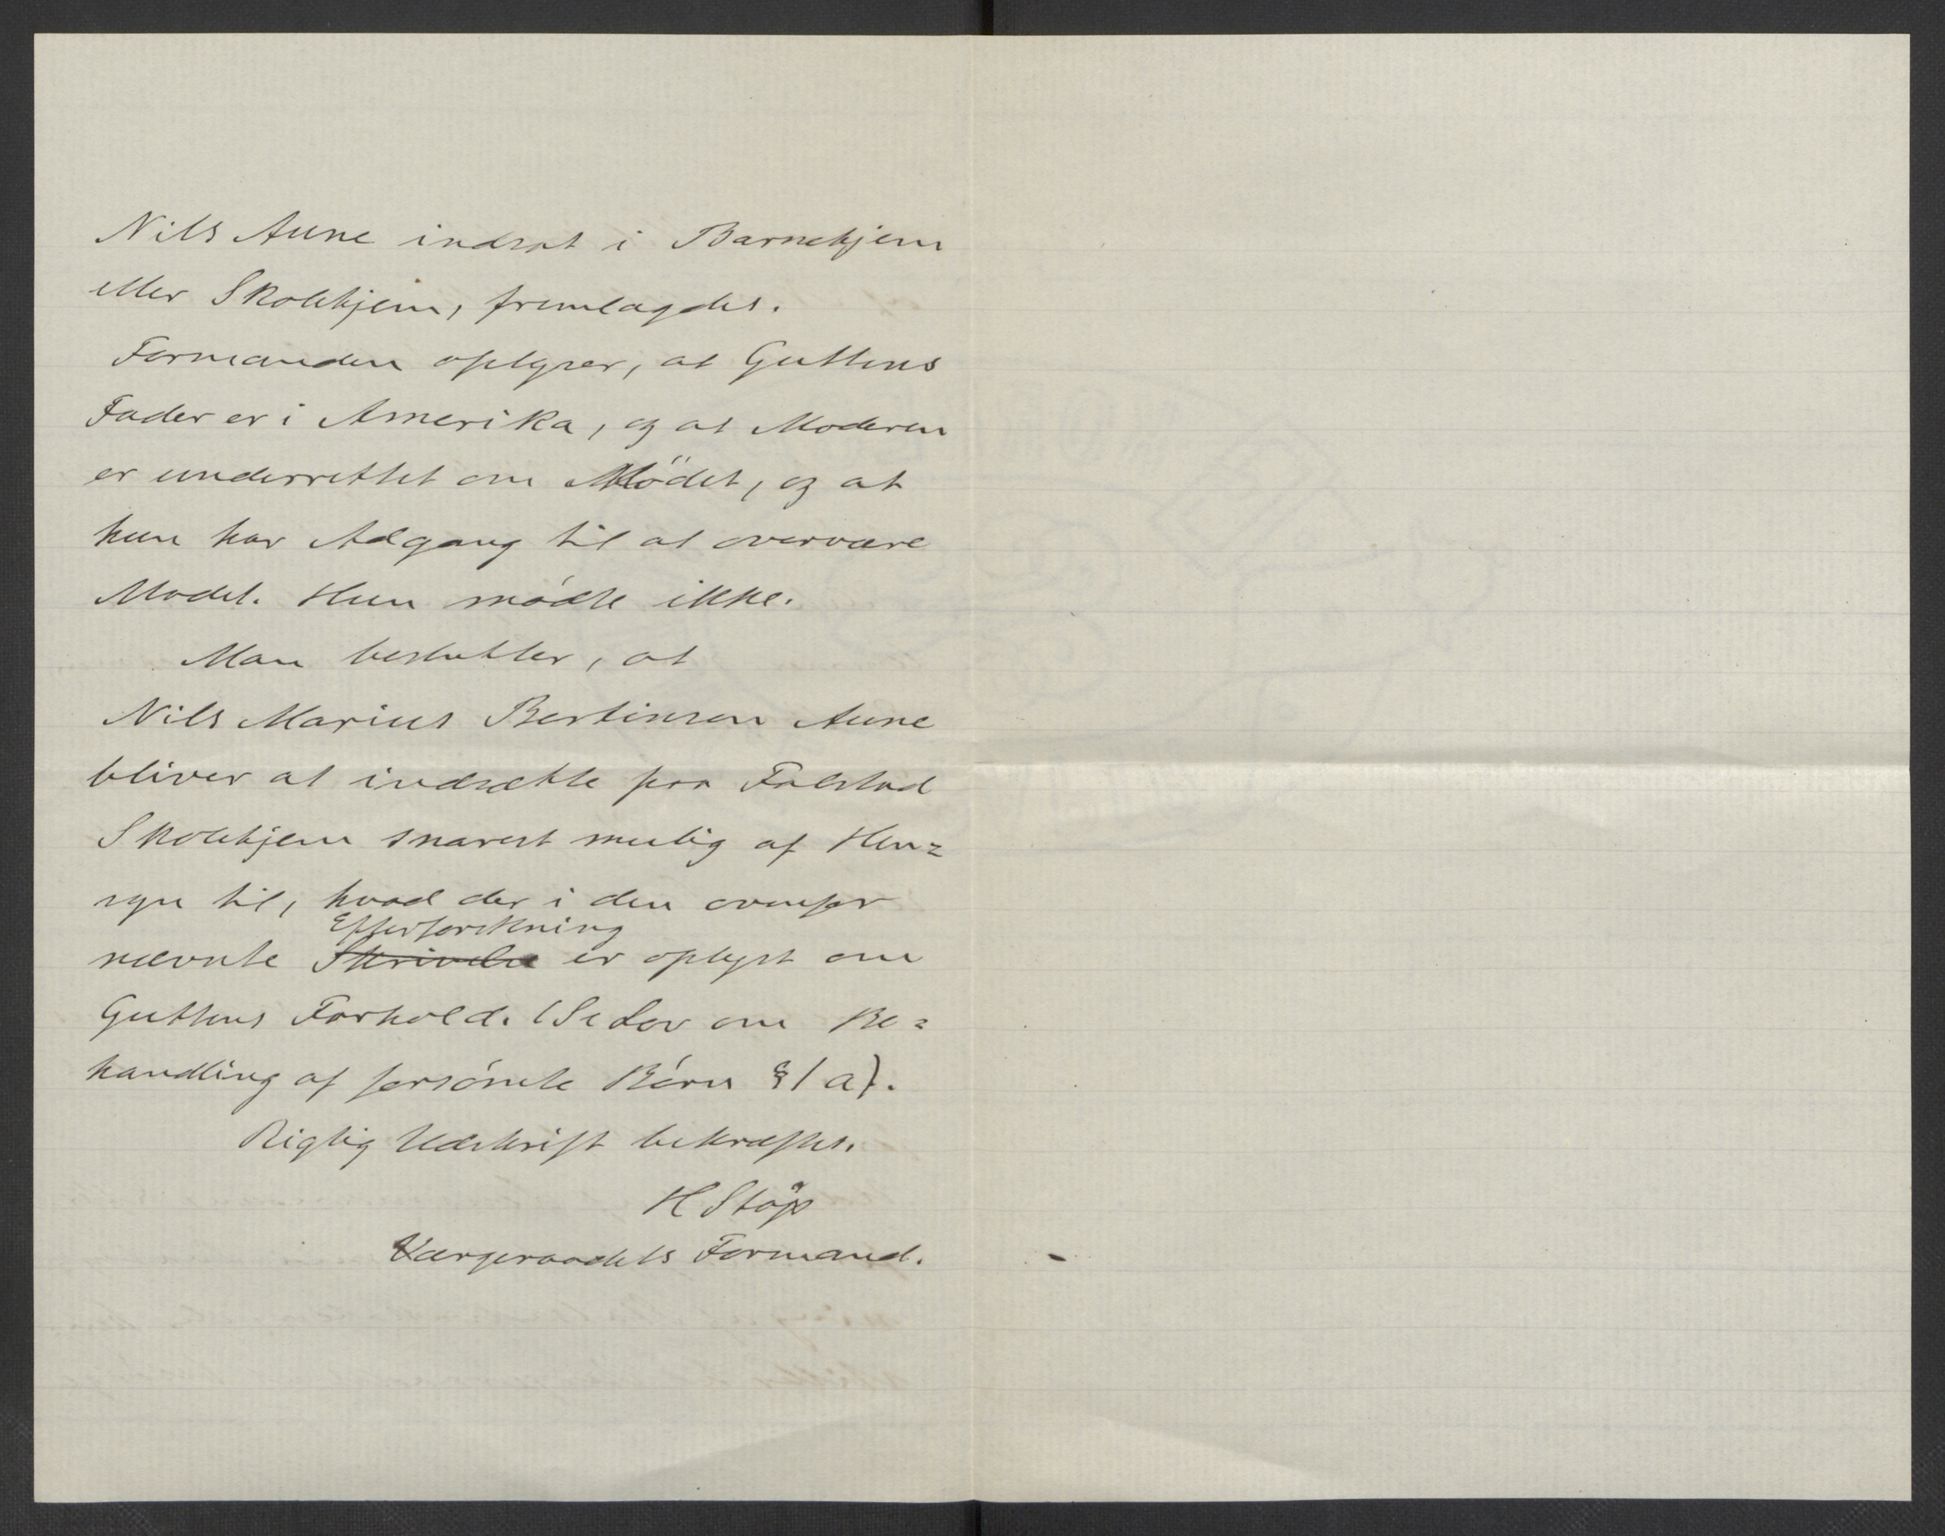 Nils Aune indsat i Barnehjem
eller Skolehjem, fremlagdes.
Formanden oplyser, at Guttens
Fader er i Amerika, og at Moderen
er underrettet om Mödet, og at
hun har Adgang til at overvære
Mödet. Hun mødte ikke.
Man beslutter, at
Nils Marius Bertinsen Aune
bliver at indsætte paa Falstad
Skolehjem snarest mulig af Hen=
syn til, hvad der i den ovenfor
Efterforskning
nævnte Skrivelse er oplyst om
Guttens Forhold. (Se Lov om Be=
handling af forsömte Börn § 1 a).
Rigtig Udskrift bekræftes.
H Stöp
Værgeraadets Formand.